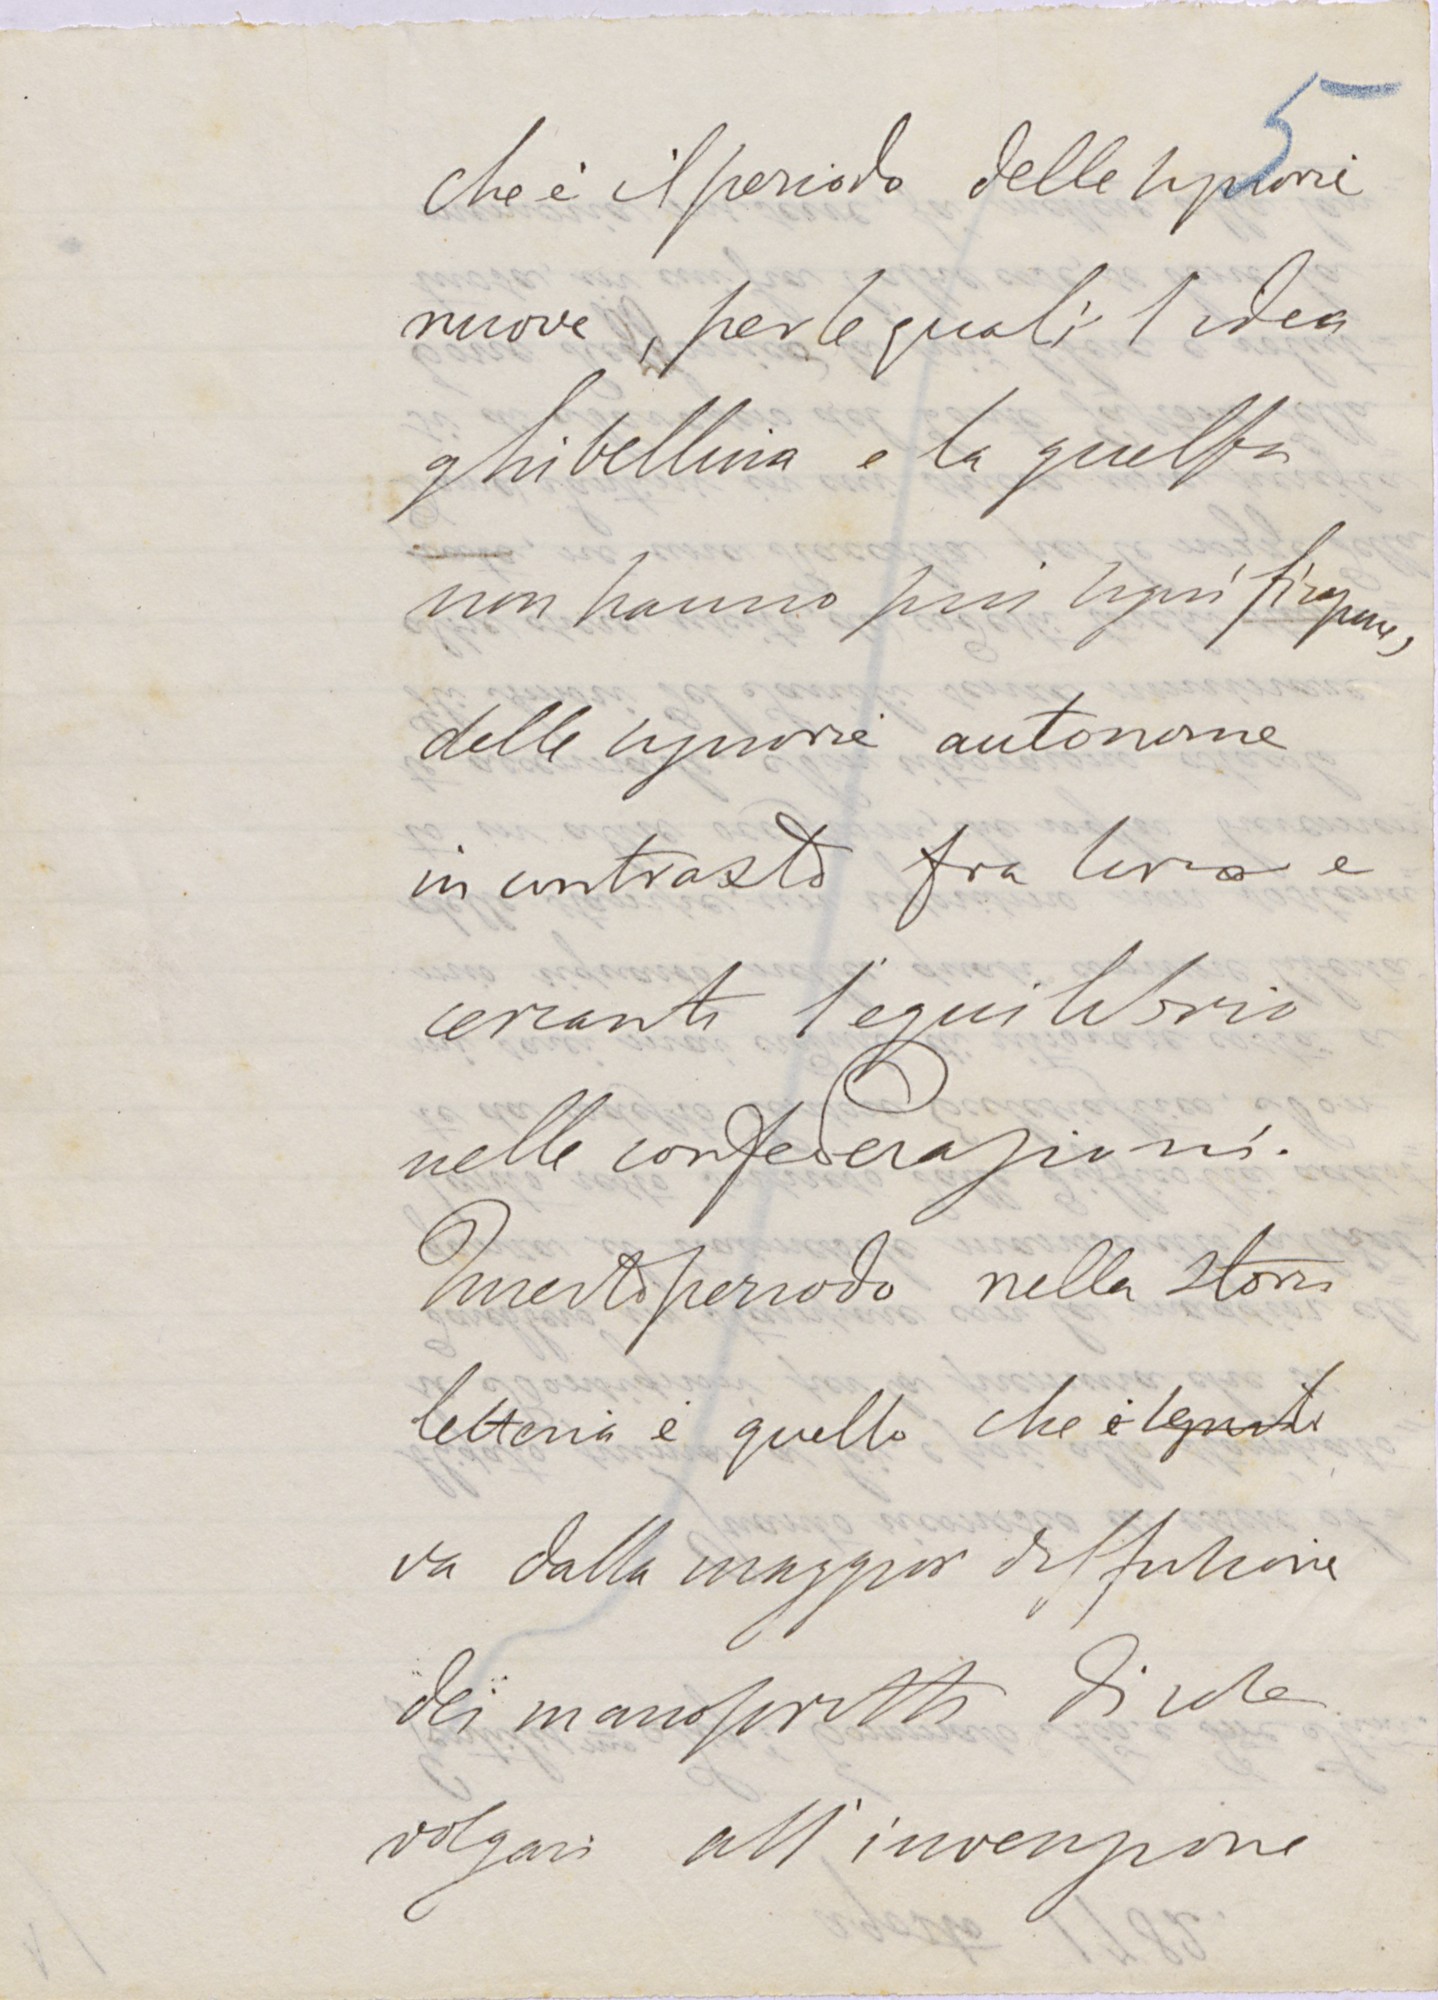 5
che è il periodo delle signorie
nuove, per le quali l'idea
ghibellina e la guelfa
non hanno più significazione,
delle signorie autonome
in contrasto fra loro e
cercanti l'equilibrio
nelle confederazioni.
Questo periodo nella storia
letteria è quello che è
va dalla maggior diffusione
dei manoscritti di cose
volgari all'invenzione